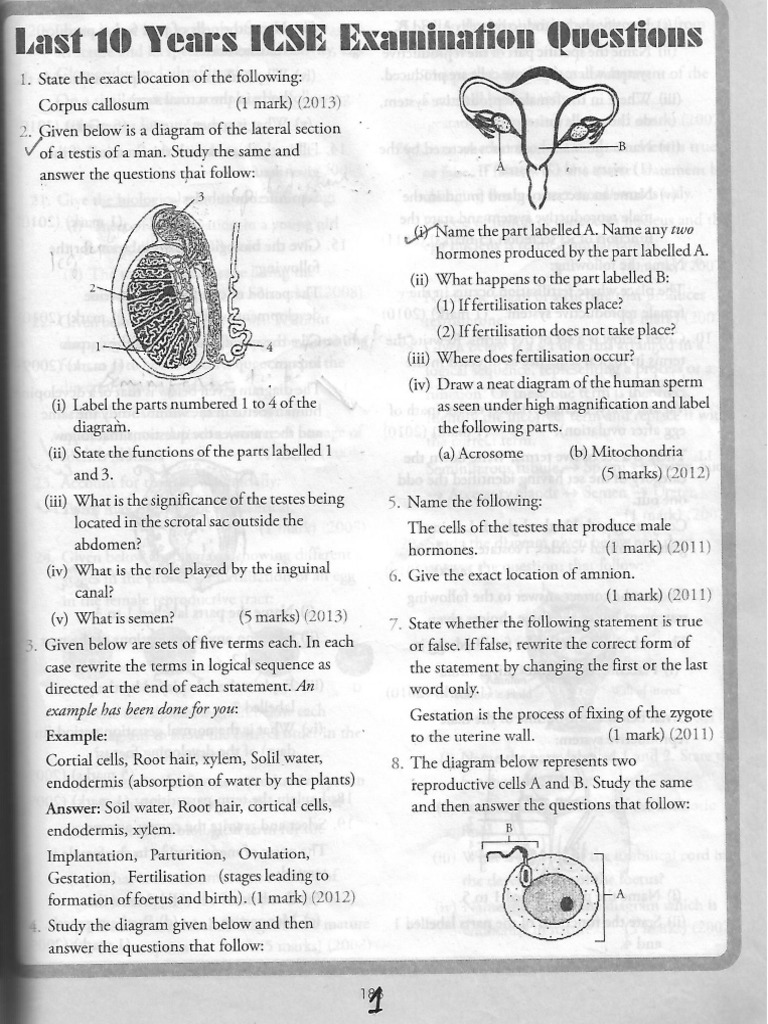 Last 10 Years ICSE Examination Questions
1. State the exact location of the following:
Corpus callosum (1 mark) (2013)
2. Given below is a diagram of the lateral section
of a testis of a man. Study the same and
answer the questions that follow:
3
2
1
4
(i) Label the parts numbered 1 to 4 of the
diagram.
(ii) State the functions of the parts labelled 1
and 3.
(iii) What is the significance of the testes being
located in the scrotal sac outside the
abdomen?
(iv) What is the role played by the inguinal
canal?
(v) What is semen? (5 marks) (2013)
3. Given below are sets of five terms each. In each
case rewrite the terms in logical sequence as
directed at the end of each statement. An
example has been done for you:
Example:
Cortial cells, Root hair, xylem, Solil water,
endodermis (absorption of water by the plants)
Answer: Soil water, Root hair, cortical cells,
endodermis, xylem.
Implantation, Parturition, Ovulation,
Gestation, Fertilisation (stages leading to
formation of foetus and birth). (1 mark) (2012)
4. Study the diagram given below and then
answer the questions that follow:
B
A
(i) Name the part labelled A. Name any two
hormones produced by the part labelled A.
(ii) What happens to the part labelled B:
(1) If fertilisation takes place?
(2) If fertilisation does not take place?
(iii) Where does fertilisation occur?
(iv) Draw a neat diagram of the human sperm
as seen under high magnification and label
the following parts.
(a) Acrosome (b) Mitochondria
(5 marks) (2012)
5. Name the following:
The cells of the testes that produce male
hormones. (1 mark) (2011)
6. Give the exact location of amnion.
(1 mark) (2011)
7. State whether the following statement is true
or false. If false, rewrite the correct form of
the statement by changing the first or the last
word only.
Gestation is the process of fixing of the zygote
to the uterine wall. (1 mark) (2011)
8. The diagram below represents two
reproductive cells A and B. Study the same
and then answer the questions that follow:
B
A
1